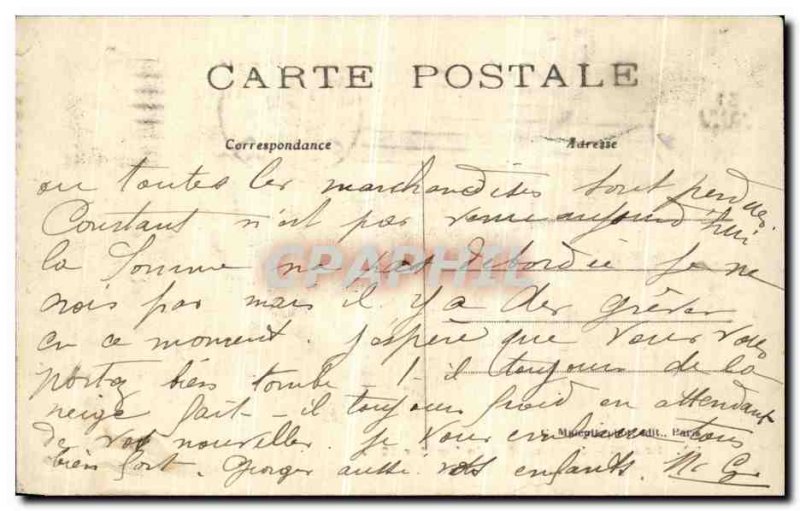 CARTE POSTALE
Correspondance Adresse
ou toutes les marchandises sont perdues.
Constant n'est pas venu aujourd'hui
la Somme n'a pas debordée je ne
sais pas mais il y a des grèves
en ce moment. J'espère que vous vous
portez bien tombe - t - il toujours de la
neige fait - il toujours froid en attendant
de vos nouvelles. Je vous embrasse tous
bien fort. Georges aussi vos enfants.
CPAPHIL
édit., Paris